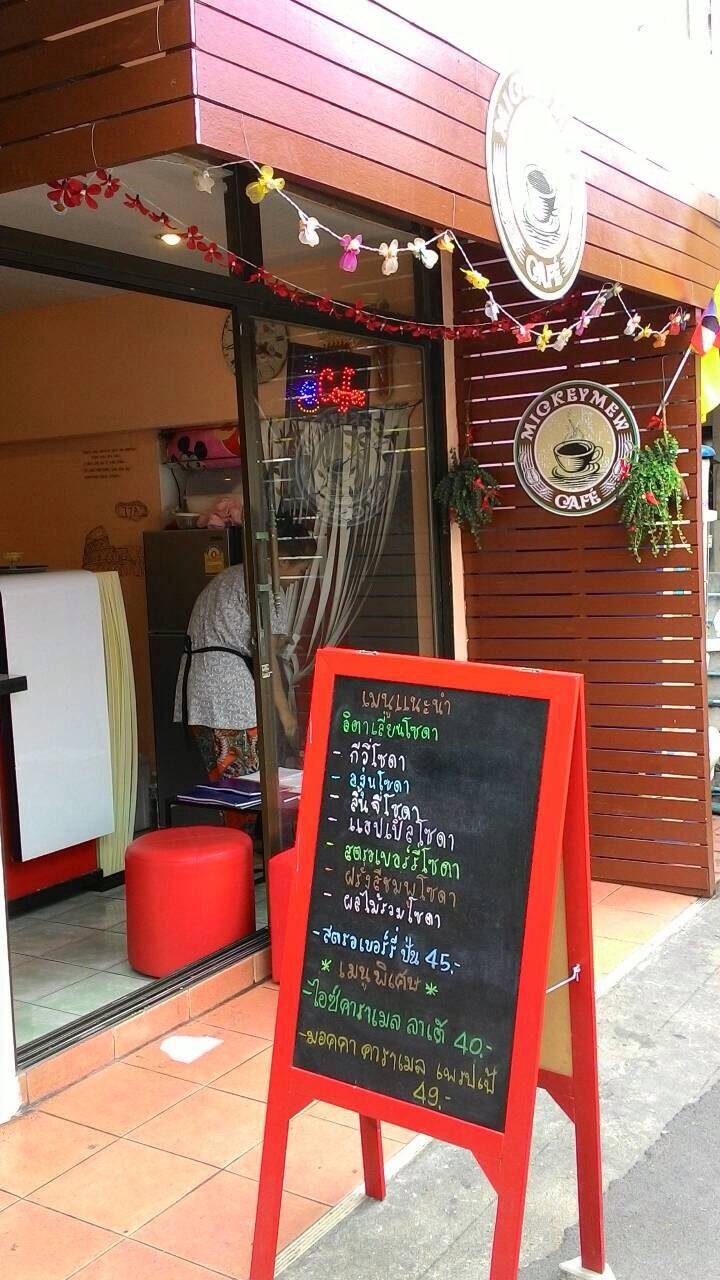 CAFÉ
Cafe
MICKEYMEW
CAFÉ
เมนูแนะนำ
อิตาเลี่ยนโซดา
- กีวีโซดา
- องุ่นโซดา
- ลิ้นจี่โซดา
- แอปเปิ้ลโซดา
- สตรอเบอร์รี่โซดา
- ฝรั่งสีชมพูโซดา
- ผลไม้รวมโซดา
- สตรอเบอร์รี่ ปั่น 45.-
* เมนูพิเศษ *
- ไอซ์คาราเมล ลาเต้ 40.-
- มอคคา คาราเมล เฟรปเป้
49.-